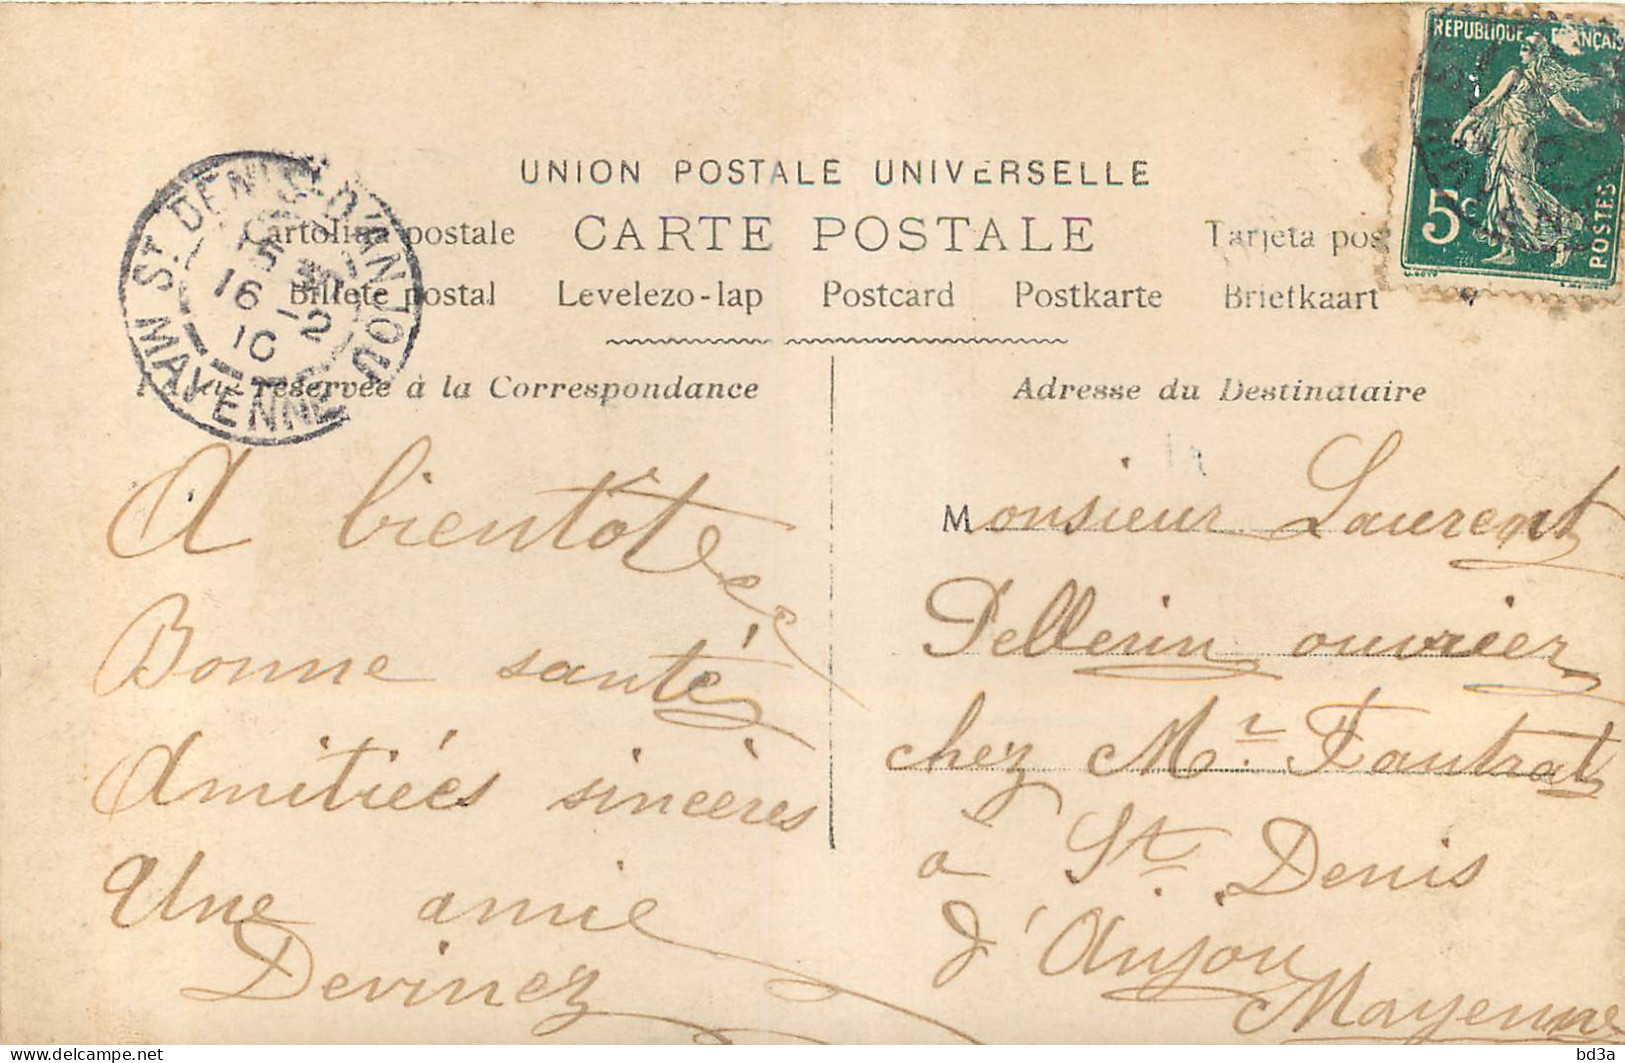 UNION POSTALE UNIVERSELLE
Cartolina postale CARTE POSTALE Tarjeta pos
Billete postal Levelezo-lap Postcard Postkarte Briefkaart
réservée à la Correspondance
Adresse du Destinataire
A bientôt
Bonne santé
Amitiées sincères
Une amie
Devinez
Monsieur Laurent
Pellerin ouvrier
chez Mr. Fautrat
à St. Denis
d'Anjou
Mayenne
ST DENIS-D'ANJOU
MAYENNE
16 -2
10
RÉPUBLIQUE FRANÇAIS
5c
POSTES
bd3a